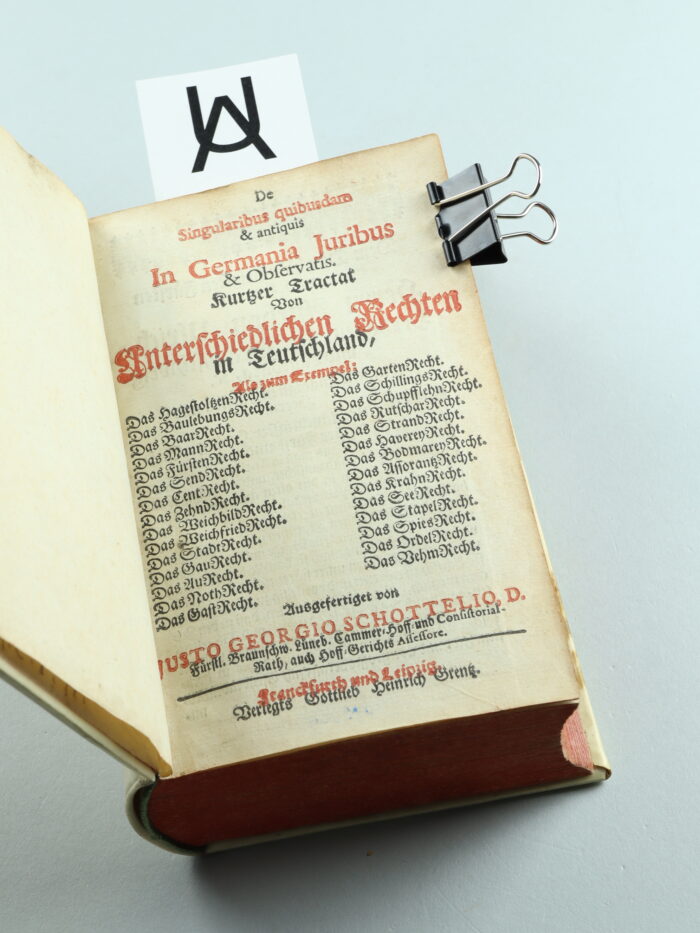 De
Singularibus quibusdam
& antiquis
In Germania Juribus
& Observatis.
Kurtzer Tractat
Von
Unterschiedlichen Rechten
in Teutschland,
Als zum Exempel:
Das HagestoltzenRecht.
Das BaulebungsRecht.
Das BaarRecht.
Das MannRecht.
Das FürstenRecht.
Das SendRecht.
Das CentRecht.
Das ZehndRecht.
Das WeichbildRecht.
Das WeichfriedRecht.
Das StadtRecht.
Das GauRecht.
Das AuRecht.
Das NothRecht.
Das GastRecht.
Das GartenRecht.
Das SchillingsRecht.
Das SchupfflehnRecht.
Das RutscharRecht.
Das StrandRecht.
Das HavereyRecht.
Das BodmareyRecht.
Das AssorantzRecht.
Das KrahnRecht.
Das SeeRecht.
Das StapelRecht.
Das SpiesRecht.
Das OrdelRecht.
Das VehmRecht.
Ausgefertiget von
JUSTO GEORGIO SCHOTTELIO, D.
Fürstl. Braunschw. Lüneb. Cammer- Hoff- und Consistorial-
Rath, auch Hoff-Gerichts Assessore.
Franckfurth und Leipzig.
Verlegts Gottlieb Heinrich Grentz.